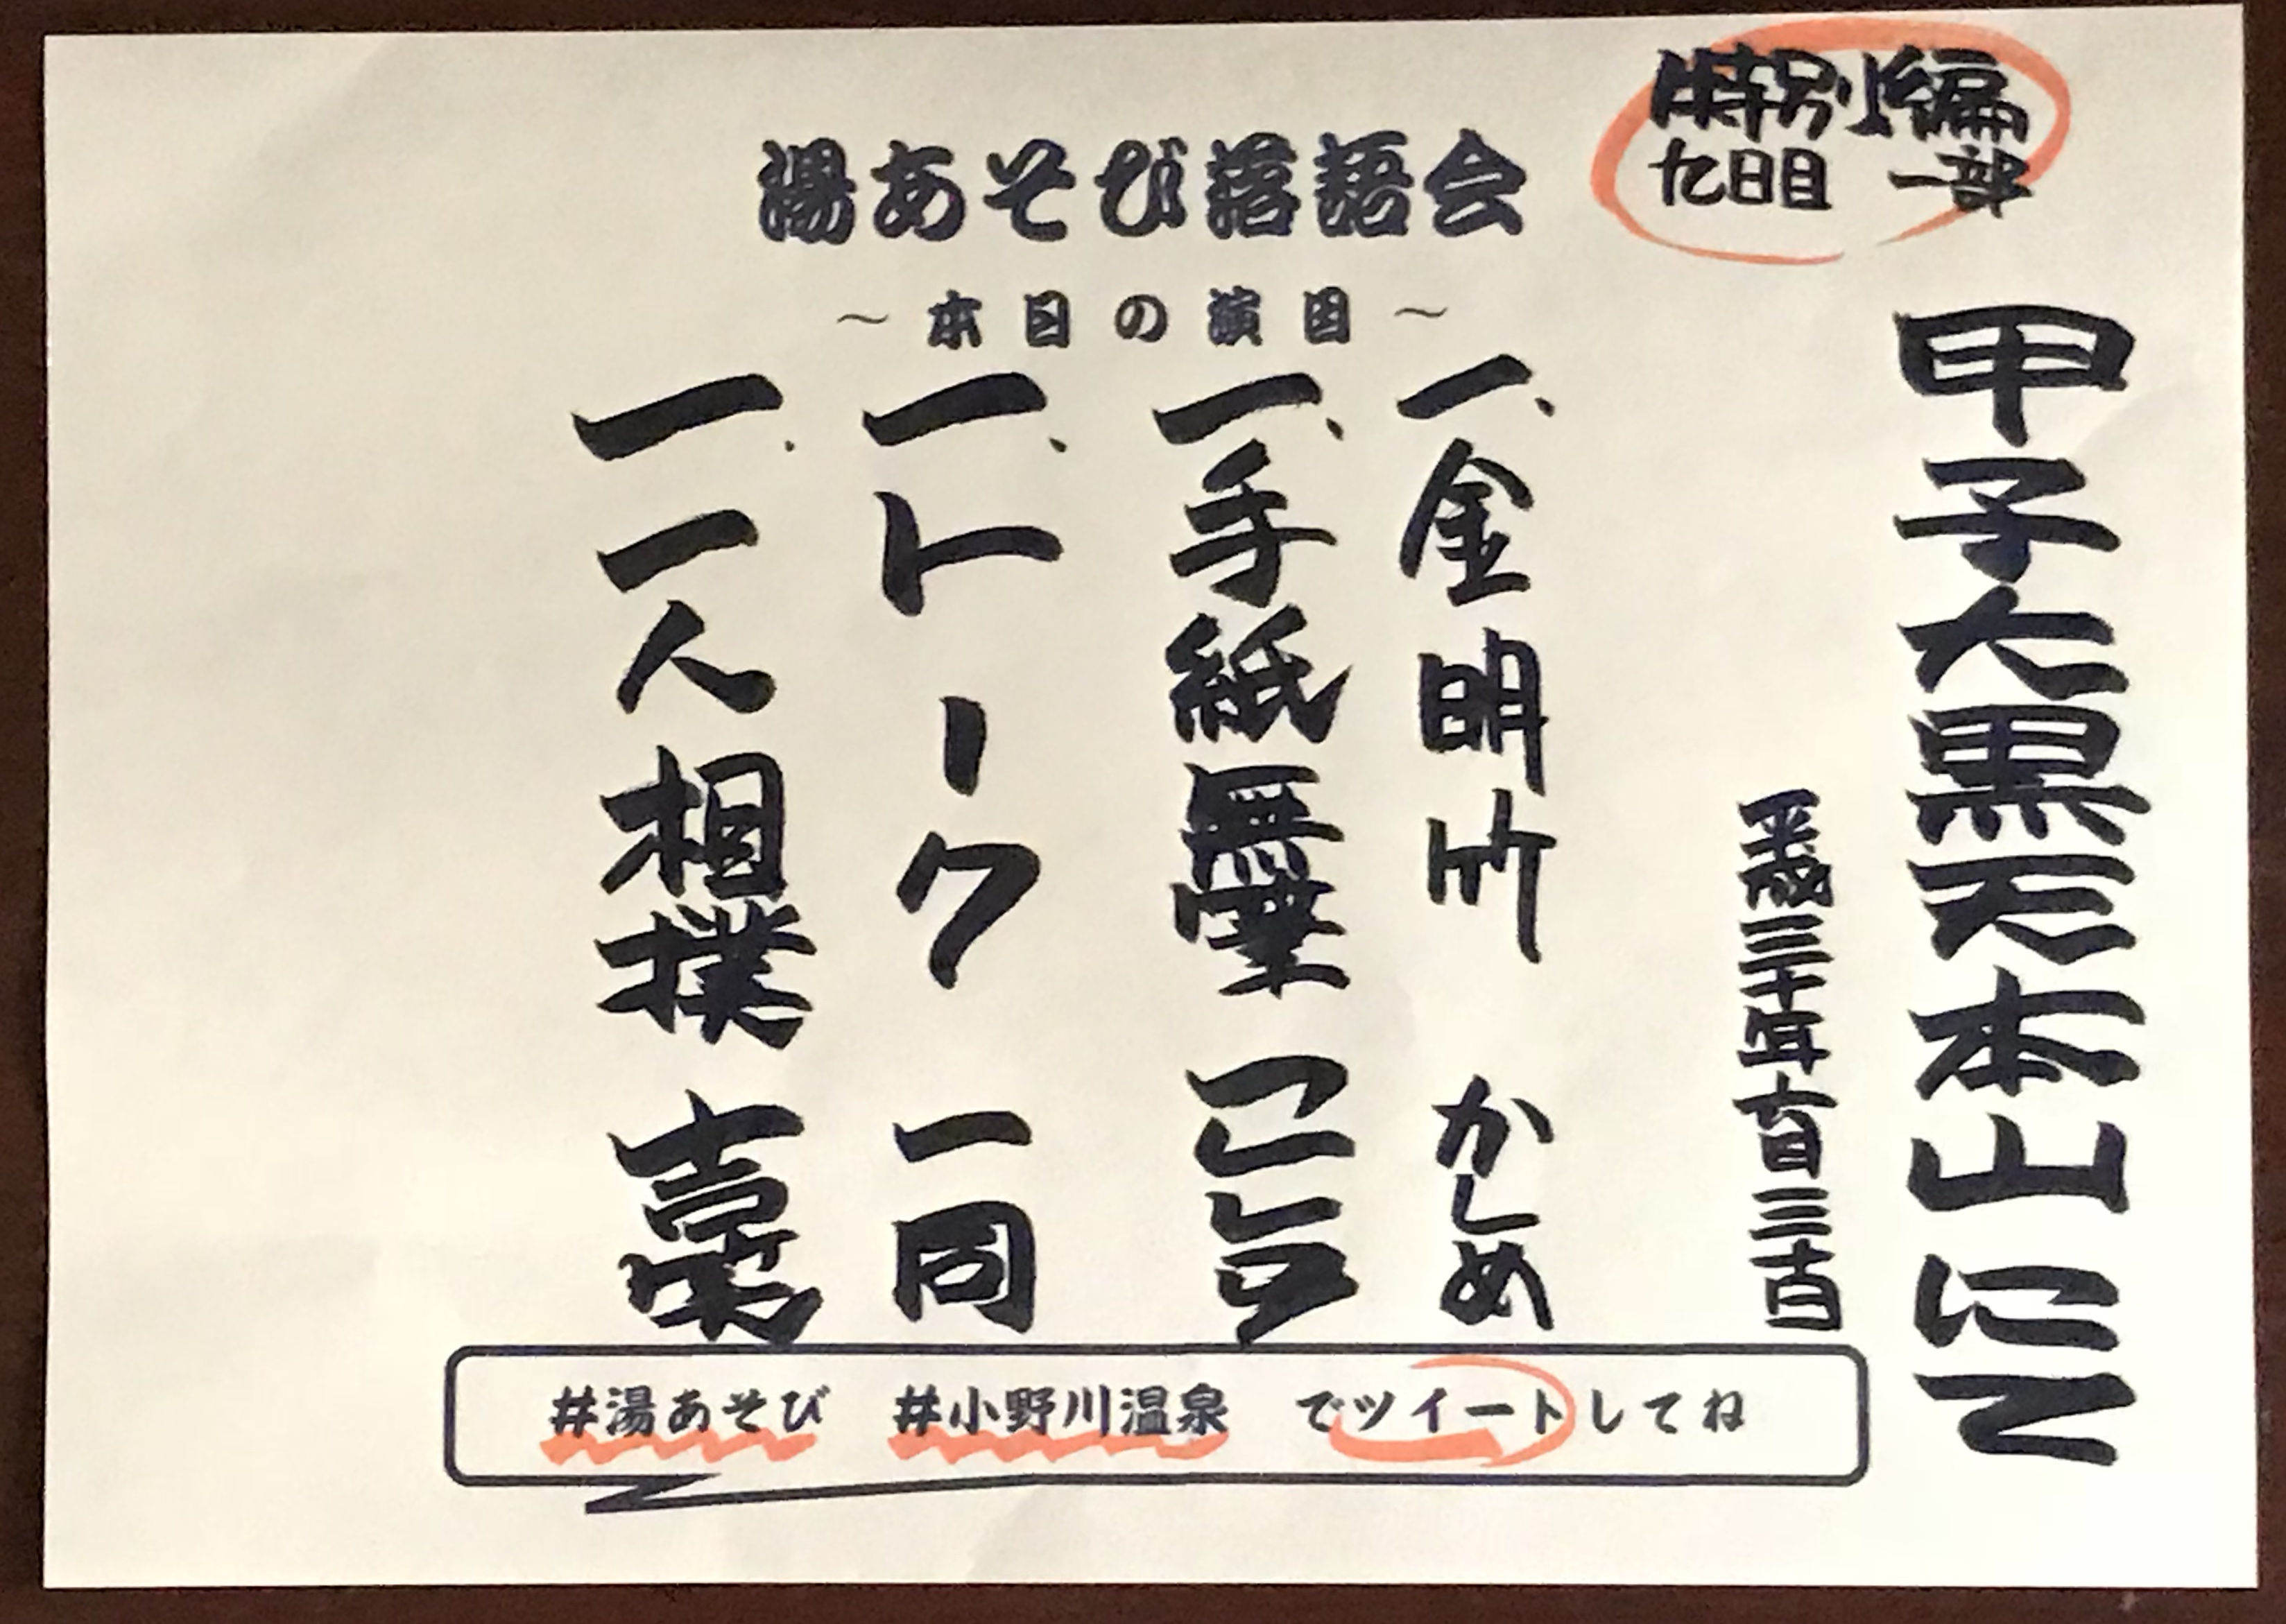 特別編
九日目 一部
湯あそび落語会
～本日の演目～
甲子大黒天本山にて
平成三十年
一、金明竹 かしめ
一、手紙無筆 こしら
一、トーク 一同
一、一人相撲 吉笑
#湯あそび #小野川温泉 でツイートしてね